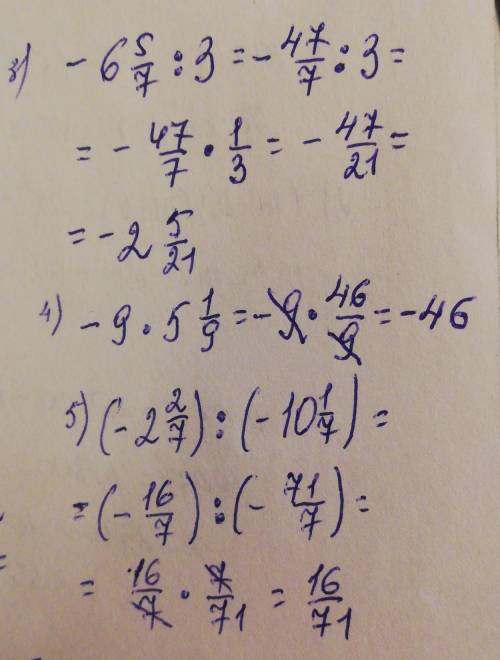 3) - 6 5/7 : 3 = - 47/7 : 3 =
= - 47/7 · 1/3 = - 47/21 =
= - 2 5/21
4) - 9 · 5 1/9 = - 9 · 46/9 = - 46
5) (- 2 2/7) : (- 10 1/7) =
= (- 16/7) : (- 71/7) =
= 16/7 · 7/71 = 16/71